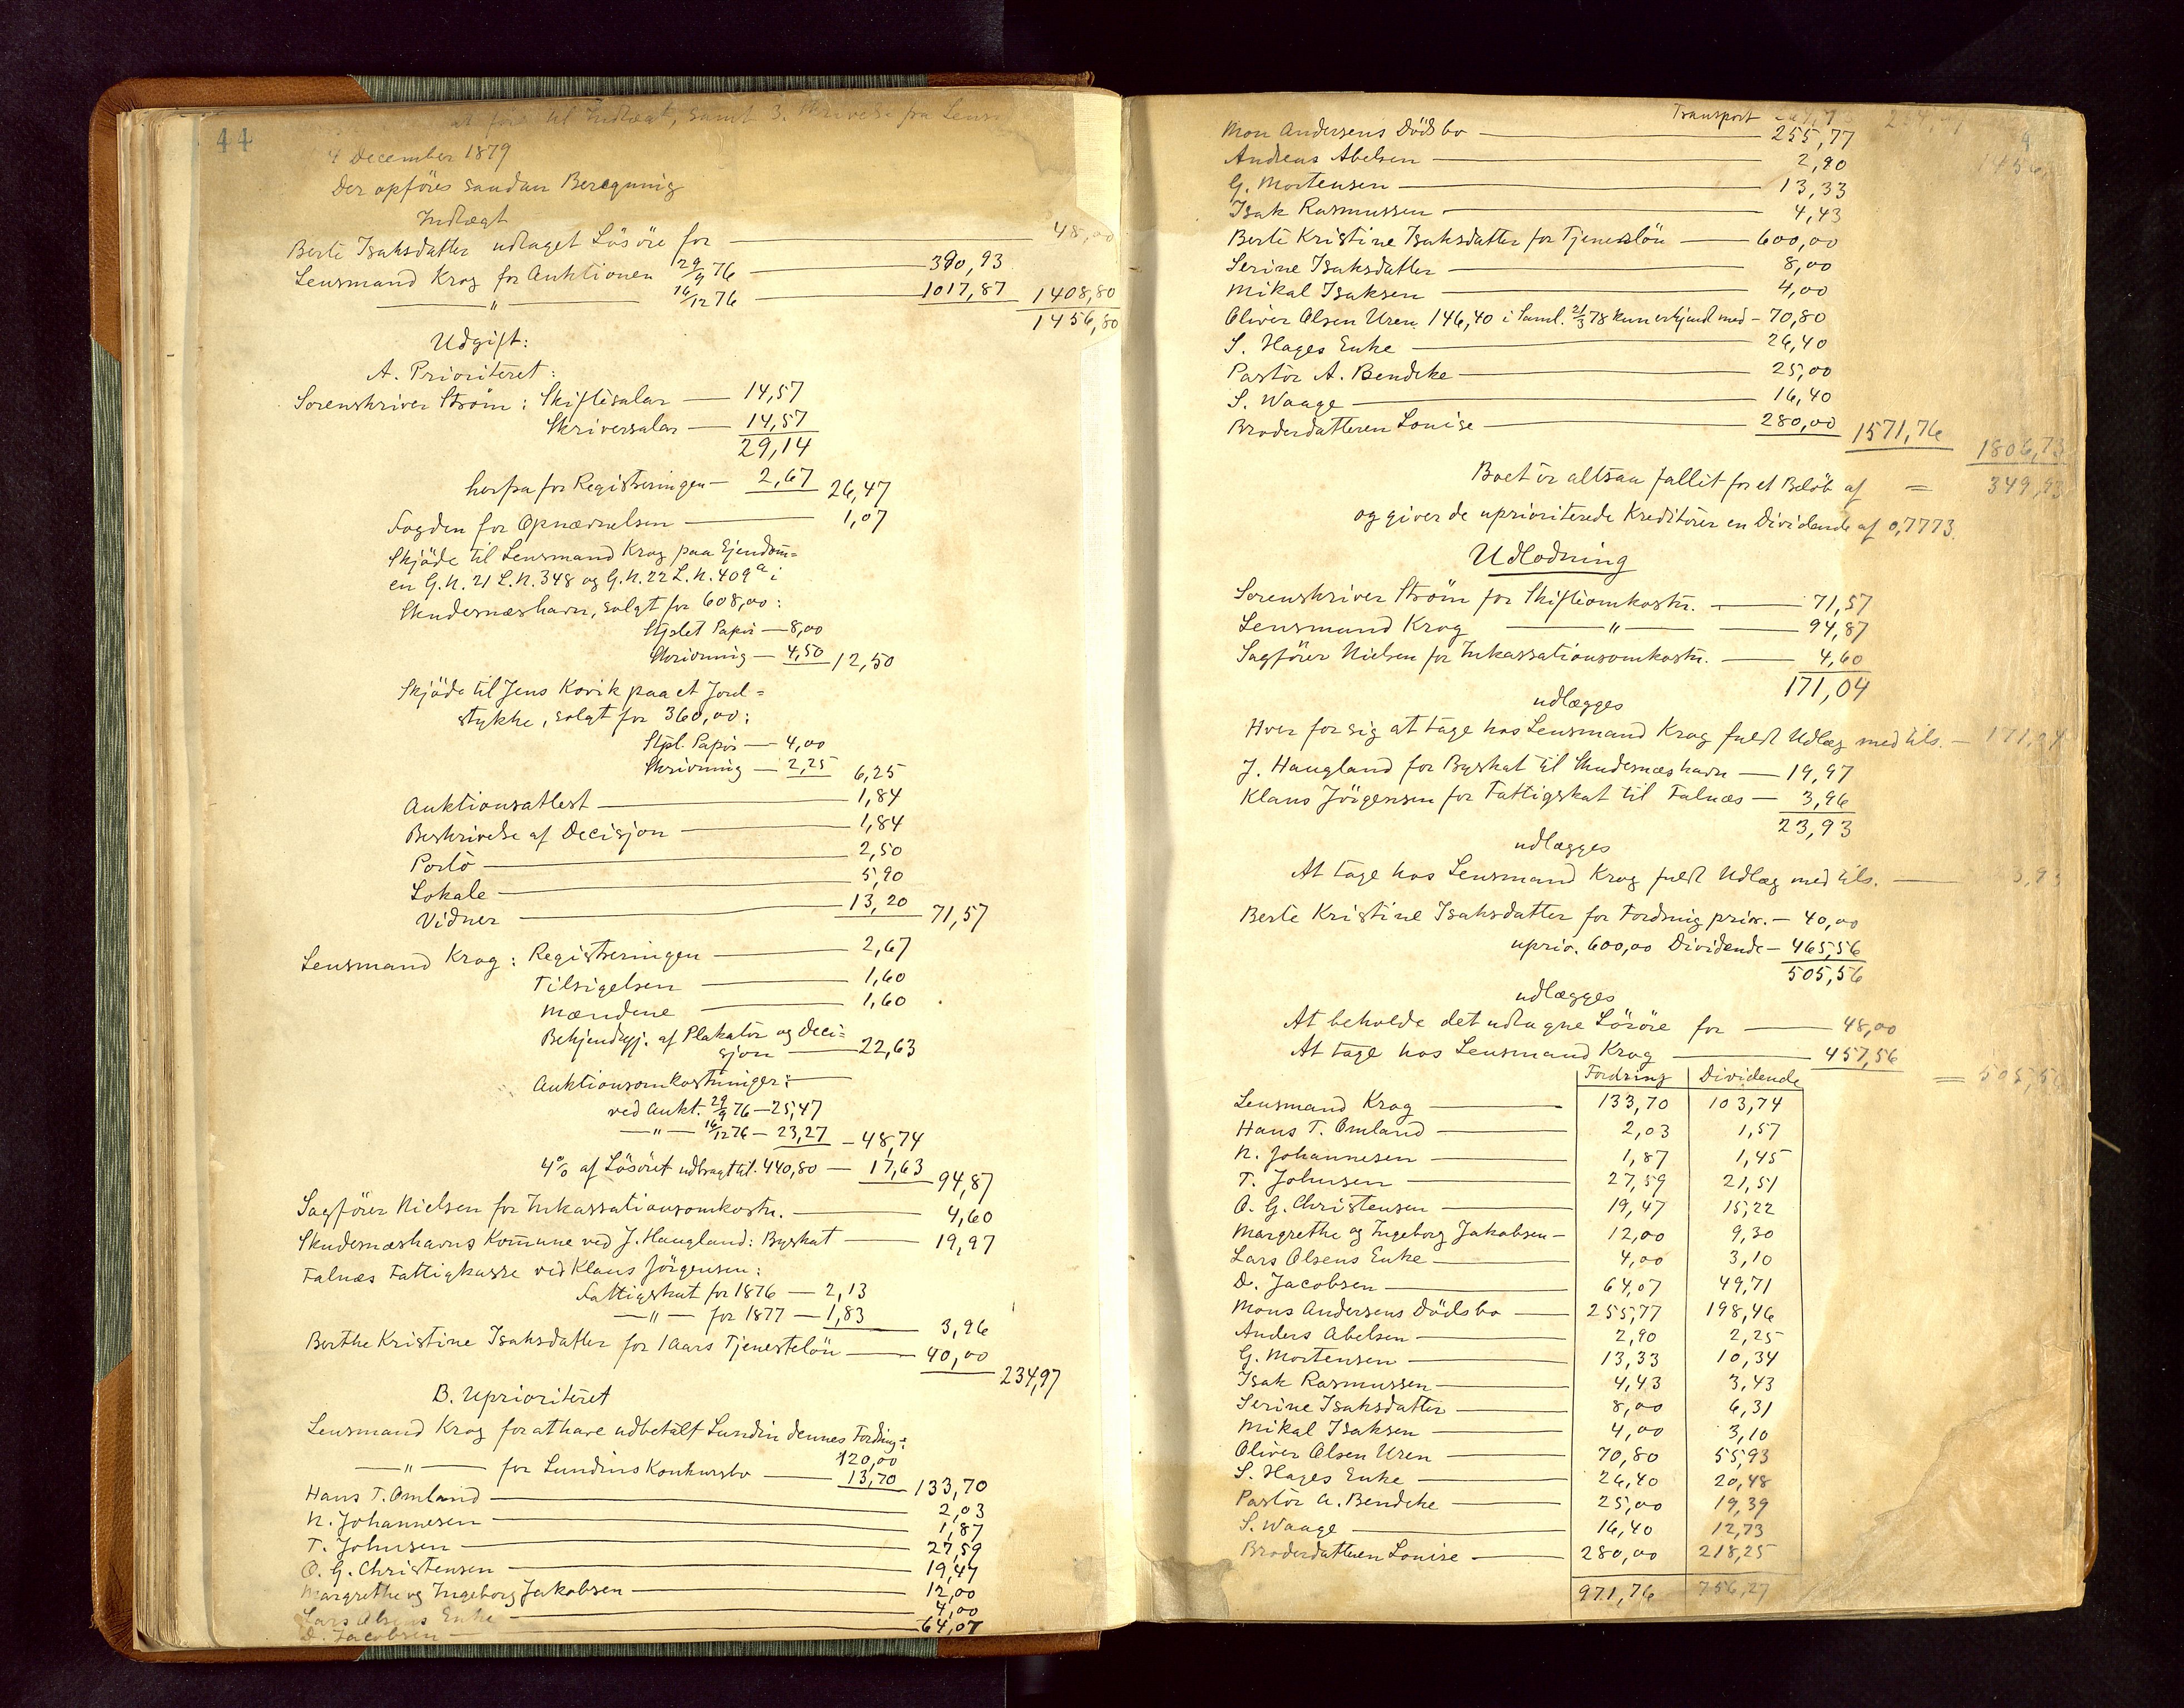 44
at før til Indtægt, samt 3. Skrivelse fra Lens
4 December 1879
Der opføres saadan Beregning
Indtægt
Berte Isaksdatter udtaget Løsøre for — 48,00
Lensmand Krog for Auktionen 29/9 76 — 390,93
— " — 16/12 76 — 1017,87 1408,80
1456,80
Udgift:
A. Prioriteret:
Sorenskriver Strøm: Skiftesalær — 14,57
Skriversalær — 14,57
29,14
herfra for Registreringen — 2,67 26,47
Fogden for Opnævnelsen — 1,07
Skjøde til Lensmand Krog paa Ejendom=
en G.N. 21 L.N. 348 og G.N. 22 L.N. 409 a i
Skudesnæshavn, solgt for 608,00:
Stplet Papir — 8,00
Skrivning — 4,50 12,50
Skjøde til Jens Kovik paa et Jord=
stykke, solgt for 360,00:
Stpl. Papir — 4,00
Skrivning — 2,25 6,25
Auktionsattest — 1,84
Beskrivelse af Decisjon — 1,84
Porto — 2,50
Lokale — 5,90
Vidner — 13,20 71,57
Lensmand Krog: Registreringen — 2,67
Tilsigelsen — 1,60
Mændene — 1,60
Bekjendtgj. af Plakater og Deci=
sjon — 22,63
Auktionsomkostninger: —
ved Aukt. 29/9 76 — 25,47
— " — 16/12 76 — 23,27 — 48,74
4% af Løsøret udbragt til 440,80 — 17,63 94,87
Sagfører Nielsen for Inkassationsomkostn. — 4,60
Skudesnæshavns Kommune ved J. Haugland: Byskat — 19,97
Falnæs Fattigkasse ved Klaus Jørgensen:
Fattigskat for 1876 — 2,13
— " — for 1877 — 1,83 3,96
Berthe Kristine Isaksdatter for 1 Aars Tjenesteløn — 40,00
234,97
B. Uprioriteret
Lensmand Krog for at have udbetalt Lundin dennes Fordring:
120,00
— " — for Lundins Konkursbo — 13,70 133,70
Hans T. Omland — 2,03
N. Johannesen — 1,87
T. Johnsen — 27,59
O. G. Christensen — 19,47
Margrethe og Ingeborg Jakobsen — 12,00
Lars Olsens Enke — 4,00
D. Jacobsen — 64,07
Transport
Mon Andersens Dødsbo — 255,77
Andreas Abelsen — 2,90
G. Mortensen — 13,33
Isak Rasmussen — 4,43
Berte Kristine Isaksdatter for Tjenesløn — 600,00
Serine Isaksdatter — 8,00
Mikal Isaksen — 4,00
Oliver Olsen Uren 146,40 i Saml. 21/3 78 kun erkjendt med — 70,80
S. Hages Enke — 26,40
Pastor A. Bendeke — 25,00
S. Waage — 16,40
Broderdatteren Louise — 280,00 1571,76
1806,73
Boet er altsaa fallit for et Beløb af = 349,93
og giver de uprioriterede Kreditorer en Dividende af 0,7773.
Udlodning
Sorenskriver Strøm for Skifteomkostn. — 71,57
Lensmand Krog — " — 94,87
Sagfører Nielsen for Inkassationsomkostn. — 4,60
171,04
udlægges
Hver for sig at tage hos Lensmand Krog fuldt Udlæg med tils. — 171,04
J. Haugland for Byskat til Skudesnæshavn — 19,97
Klaus Jørgensen for Fattigskat til Falnæs — 3,96
23,93
udlægges
At tage hos Lensmand Krog fuldt Udlæg med tils. — 3,93
Berte Kristine Isaksdatter for Fordring prior. — 40,00
uprior. 600,00 Dividende — 465,56
505,56
udlægges
At beholde det udtagne Løsøre for — 48,00
At tage hos Lensmand Krog — 457,56
= 505,56
Fordring Dividende
Lensmand Krog — 133,70 103,74
Hans T. Omland — 2,03 1,57
N. Johannesen — 1,87 1,45
T. Johnsen — 27,59 21,51
O. G. Christensen — 19,47 15,22
Margrethe og Ingeborg Jakobsen — 12,00 9,30
Lars Olsens Enke — 4,00 3,10
D. Jacobsen — 64,07 49,71
Mons Andersens Dødsbo — 255,77 198,46
Anders Abelsen — 2,90 2,25
G. Mortensen — 13,33 10,34
Isak Rasmussen — 4,43 3,43
Serine Isaksdatter — 8,00 6,31
Mikal Isaksen — 4,00 3,10
Oliver Olsen Uren — 70,80 55,93
S. Hages Enke — 26,40 20,48
Pastor A. Bendeke — 25,00 19,39
S. Waage — 16,40 12,73
Broderdatteren Louise — 280,00 218,25
971,76 756,27